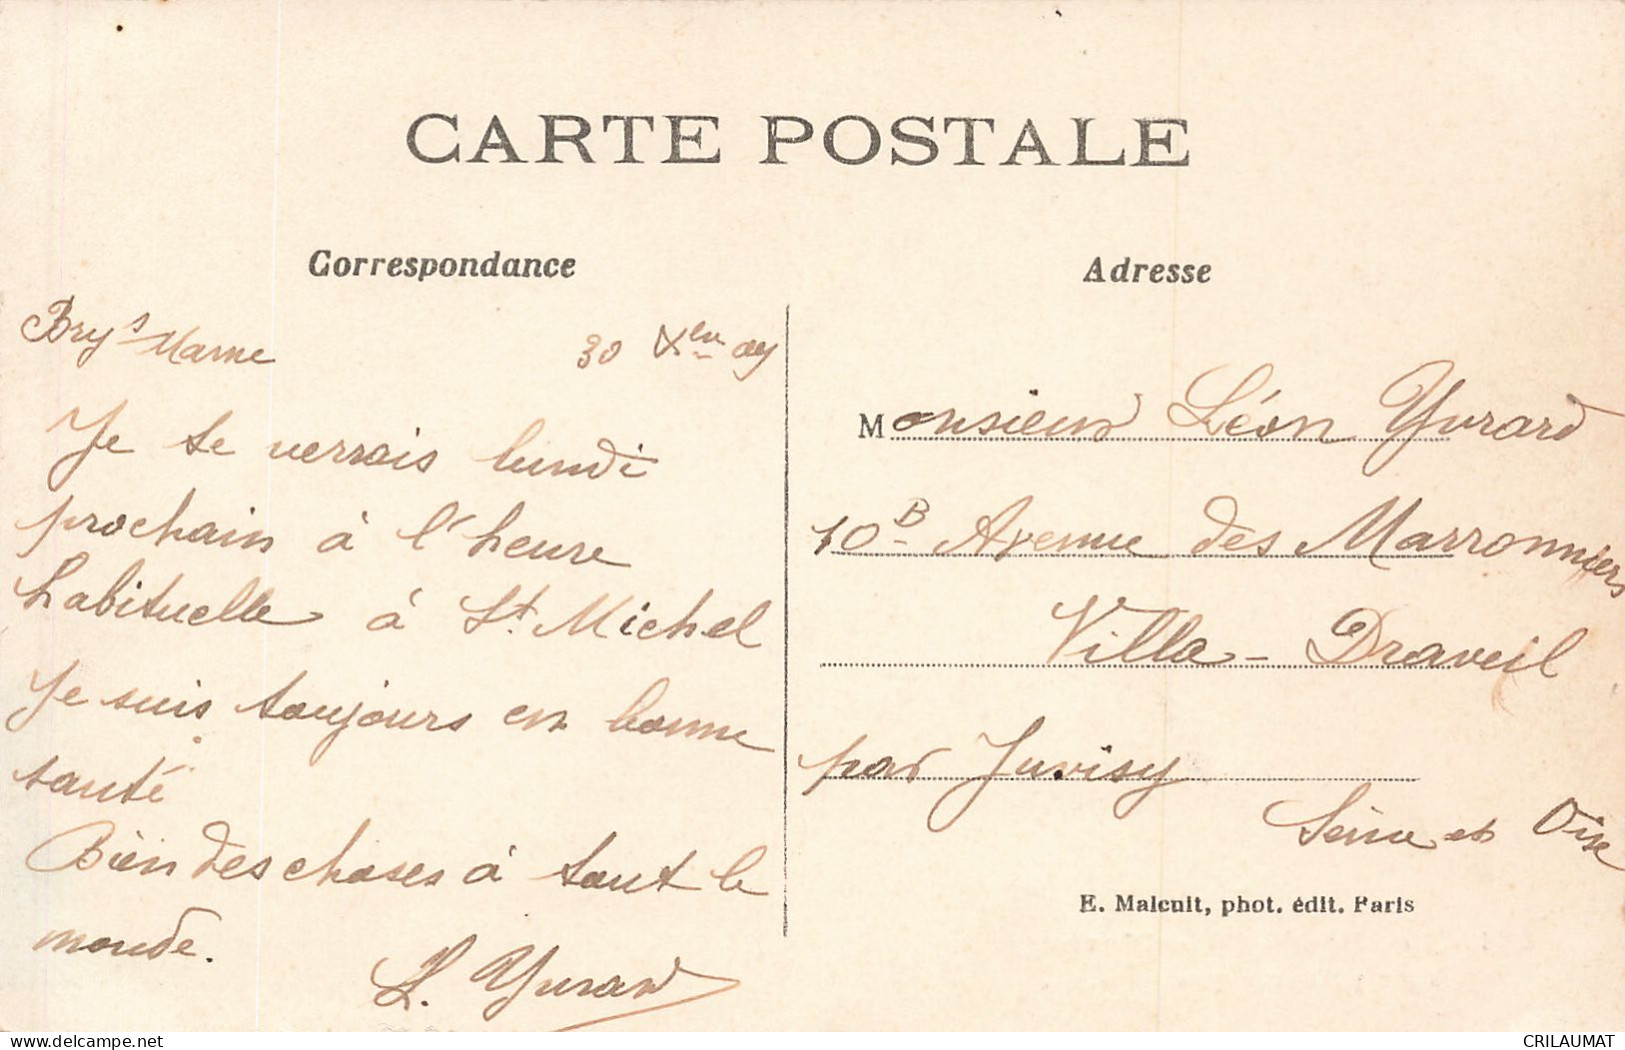 CARTE POSTALE
Correspondance
Bry s Marne 30 Xbre 09
Je te verrais lundi
prochain à l'heure
habituelle à St. Michel
Je suis toujours en bonne
santé
Bien des choses à tout le
monde.
Adresse
Monsieur Léon
10 B Avenue des Marronniers
Villa - Draveil
par Juvisy
Seine et Oise
E. Malcuit, phot. édit. Paris
my-never-ending-collection.delcampe.net
CRILAUMAT